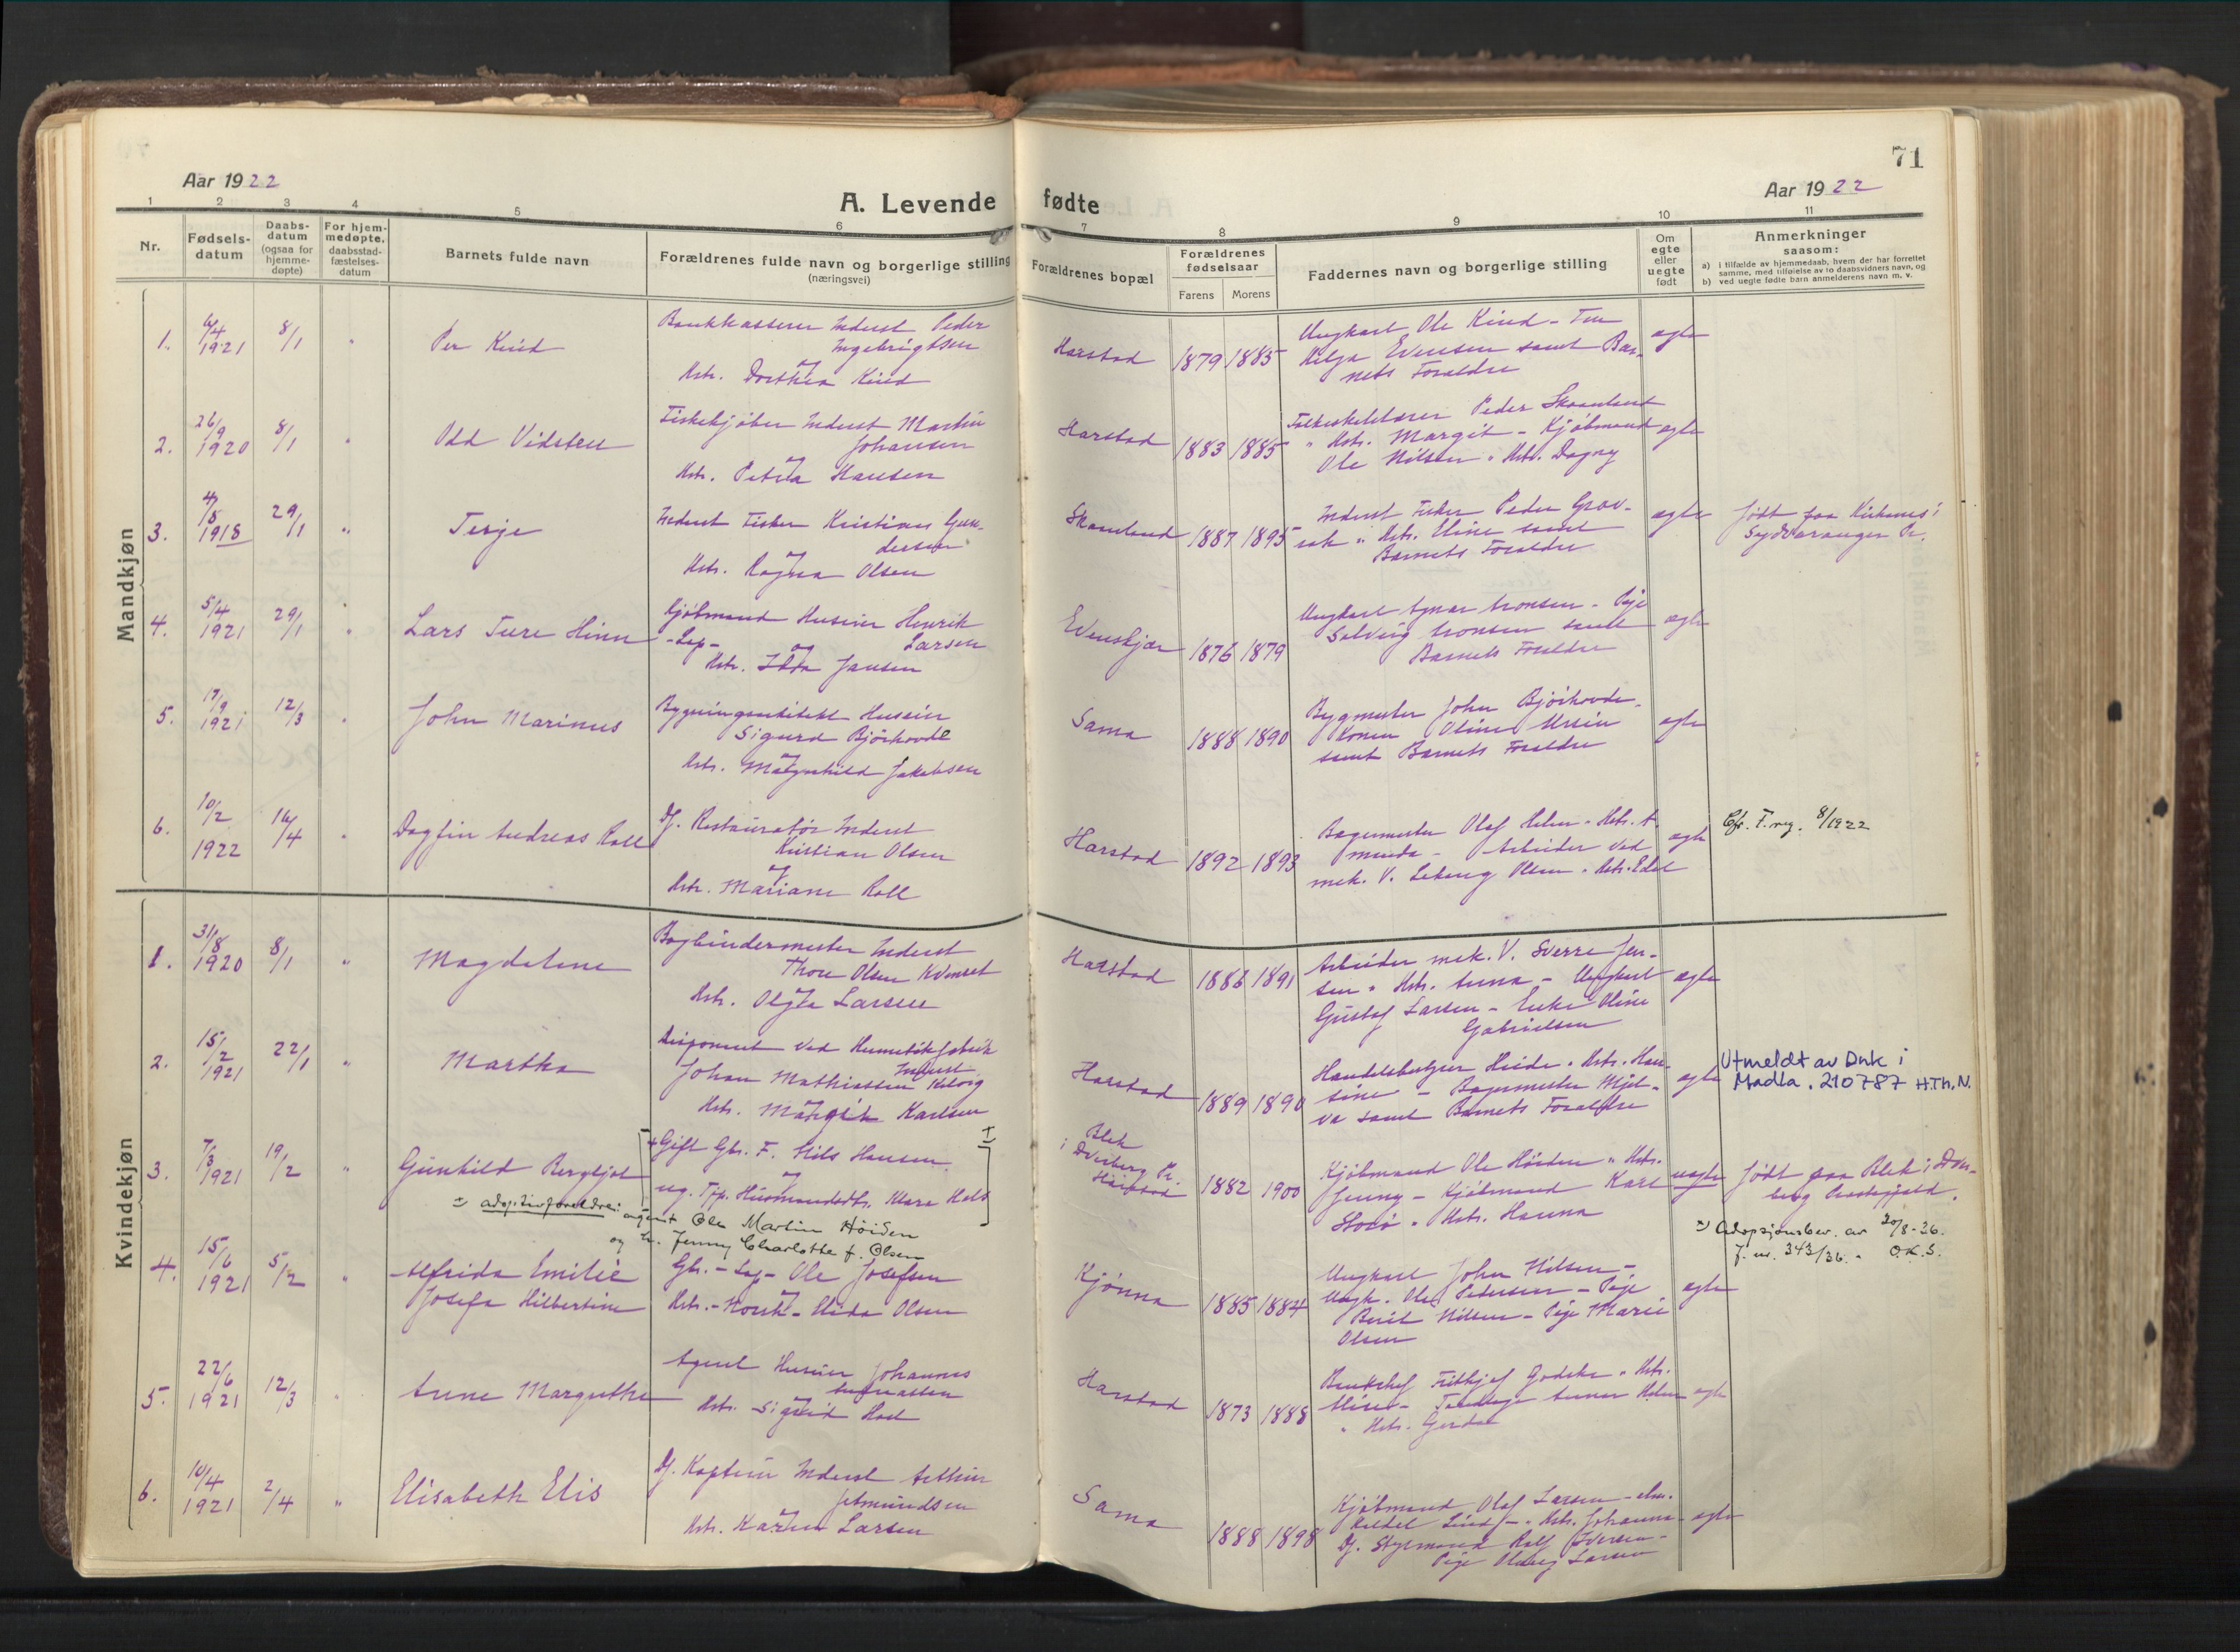 71
Aar 1922
Aar 1922
A. Levende fødte
1 2 3 4 5 6 7 8 9 10 11
Nr.
Fødselsdatum
Daabsdatum
(ogsaa for
hjemmedøpte)
For hjemmedøpte,
daabsstadfæstelsesdatum
Barnets fulde navn
Forældrenes fulde navn og borgerlige stilling
(næringsvei)
Forældrenes bopæl
Forældrenes
fødselsaar
Farens
Morens
Faddernes navn og borgerlige stilling
Om
egte
eller
uegte
født
Anmerkninger
saasom:
a) i tilfælde av hjemmedaab, hvem der har forrettet
samme, med tilføielse av to daabsvidners navn, og
b) ved uegte fødte barn anmelderens navn m. v.
Mandkjøn
1.
1921
8/1
"
Per Kiil
Bankkasserer Inderst Peder
Ingebrigtsen
og
Hstr. Dorthea
Harstad
1879 1885
Ungkarl Ole
Helga Evensen samt Bar-
nets Foræld­re
ægte
2.
26/9
1920
8/1
"
Odd Vidsteen
Fiskekjøber Inderst Martin
Johansen
og
Hstr. Petra Hansen
Harstad
1883 1885
Peder Skaanland
" Hstr. Margit - Kjøbmand
Ole Nilsen " Hstr. Dagny
ægte
3.
4/8
1918
29/1
"
Terje
Inderst Fisker Kristian Gun-
dersen
og
Hstr. Ragna Olsen
Skaanland
1887 1895
Inderst Fisker Peder Grav-
" Hstr. Eline samt
Barnets Forældre
ægte
født paa Kirkenes i
Sydvaranger Pr.
4.
5/4
1921
29/1
"
Lars Ture Hinn
Kjøbmand Huseier Henrik
-Lap- Larsen
og
Hstr. Ilda Jansen
Evenskjær
1876 1879
Ungkarl Agnar Aronsen - Pige
Solveig Aronsen samt
Barnets Forældre
ægte
5.
17/9
1921
12/3
"
John Marinus
Husein
Sigurd Bjørhovde
og
Hstr. Magnhild Jakobsen
Sama
1888 1890
Bygmester John Bjørhovde -
Konen Oline Ursin
samt Barnets Forældre
ægte
6.
10/2
1922
16/4
"
Dagfin Andreas Roll
Df. Restauratør Inderst
Kristian Olsen
og
Hstr. Mariane Roll
Harstad
1892 1893
Bagermester Olaf Helen " Hstr. A-
manda - Arbeider ved
mek. V. Olsen " Hstr. Edel
ægte
Cfr. F. reg. 8/1922
Kvindekjøn
1.
31/8
1920
8/1
"
Magdelene
Bogbindermester Inderst
Thore Olsen Kvernet
og
Hstr. Olga Larsen
Harstad
1886 1891
Arbeider mek. V. Sverre Jen-
sen " Hstr. Anna - Ungkarl
Gustaf Larsen - Enke Oline
Gabrielsen
ægte
2.
15/2
1921
22/1
"
Martha
Disponent ved Hermetikfabrik
Inderst
Johan Mathiassen
og
Hstr. Margit Karlsen
Harstad
1889 1890
Handelsbetjen " Hstr. Han-
sine - Bagermester Mjel-
va samt Barnets Forældre
ægte
Utmeldt av Dnk i
Madla. 210787 H.Th.N.
3.
7/3
1921
19/2
"
Gunhild Bergljot
Gift Gbr. F. Nils Hansen
og
ug. Tjp. Husmandsdtr. Klara Hals
± adoptivforeldre: agent Ole Martin Høiden
og h. Jenny Charlotte f. Olsen
Blek
i Dverberg Pr.
Harstad
1882 1900
Kjøbmand Ole Høiden " Hstr.
Jenny - Kjøbmand Karl
" Hstr. Hanna
uægte
født paa Blek i Dver-
berg Prestegjeld.
Adopsjonsbev. av 20/8-36.
J. nr. 343/36. O.K.S.
4.
15/6
1921
5/2
"
Alfrida Emilie
Josefa Hilbertine
Gbr. - Lap - Ole Josefsen
og
Hstr. - Norsk - Olsen
Kjønna
1885 1884
Ungkarl John Nilsen -
Ungk. Ole Pedersen - Pige
Berit Nilsen - Pige Marie
Olsen
ægte
5.
22/6
1921
12/3
"
Anne Margrethe
Agent Husein Johannes
og
Hstr. Sigrid
Harstad
1873 1888
Fritjof Godske " Hstr.
" Hstr. Gerda
ægte
6.
10/4
1921
2/4
"
Elisabeth Elis
Df. Kaptein Inderst Arthur
Jetmundsen
og
Hstr. Karen Larsen
Sama
1888 1898
Kjøbmand Olaf Larsen -
Hstr. Johanna -
Df. Styrmand Rolf Iversen -
Pige Larsen
ægte